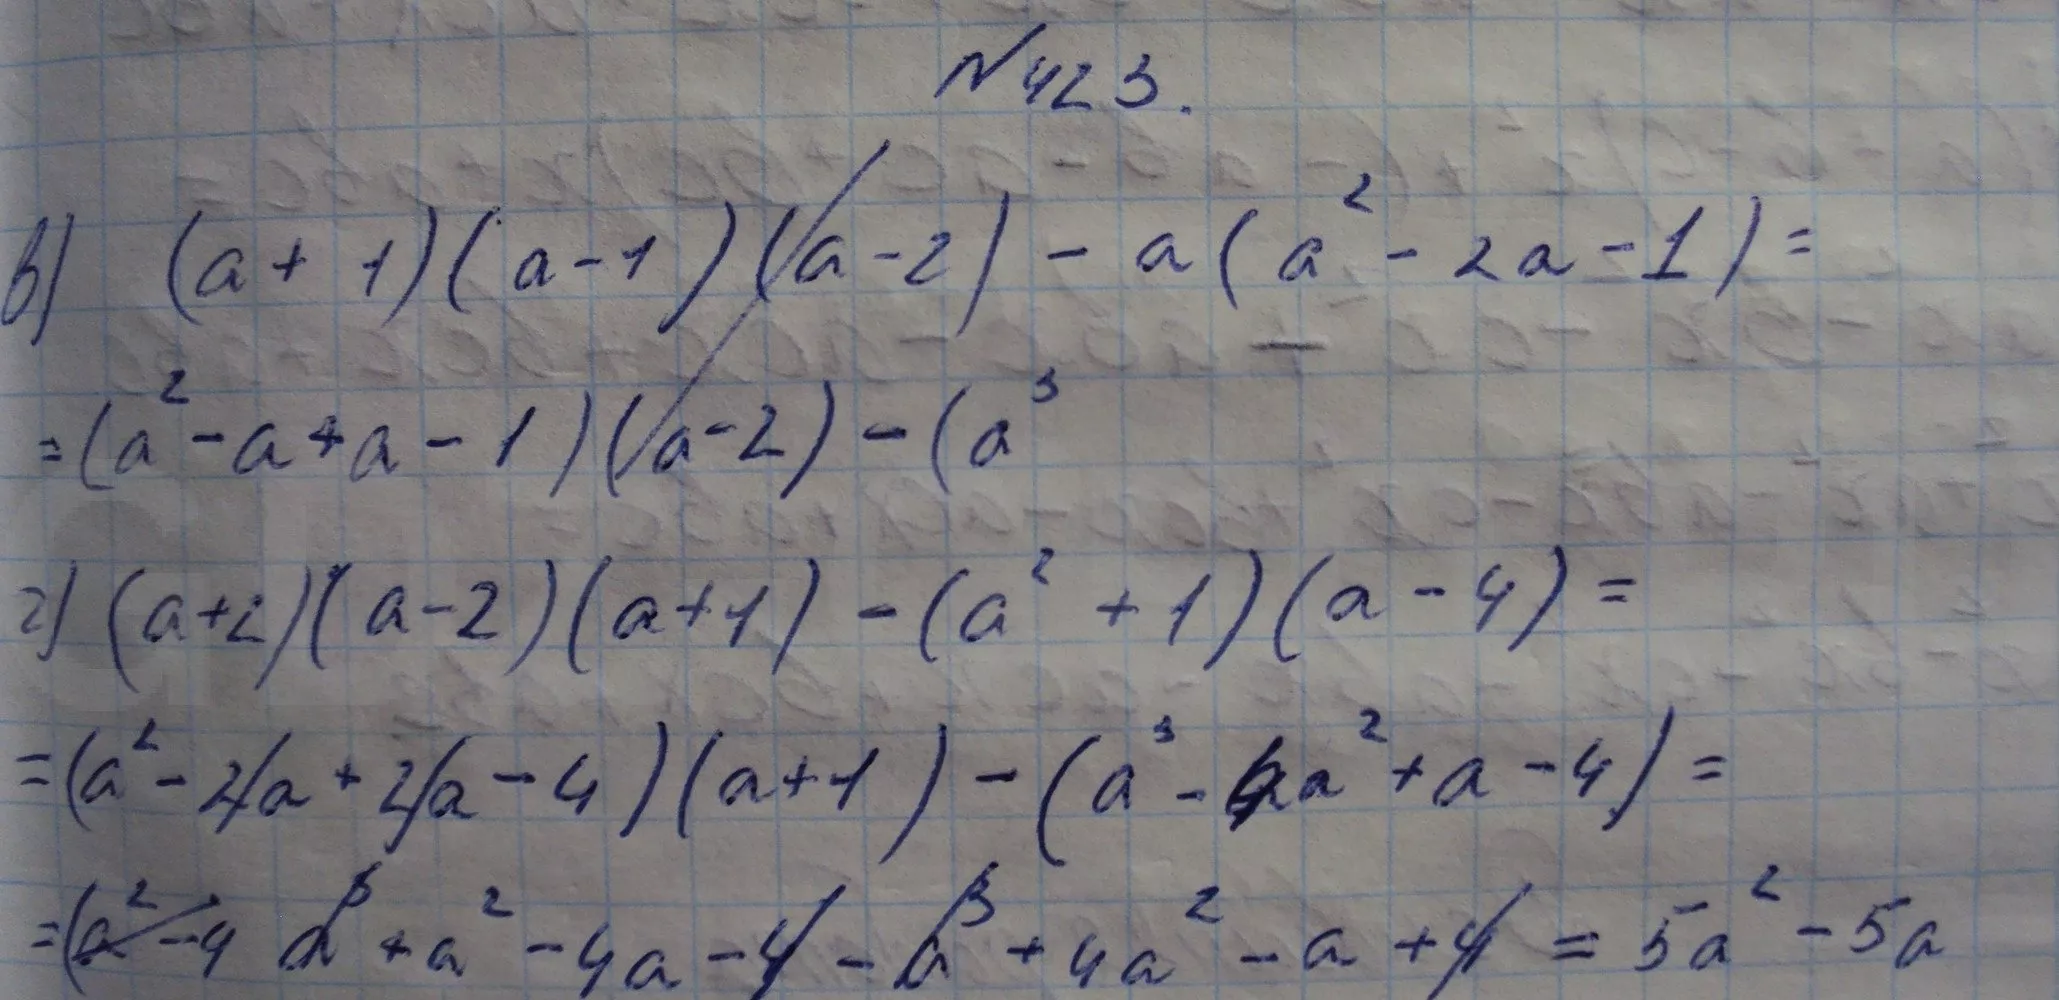 №423.
в) (a+1)(a-1)(a-2)-a(a²-2a-1)=
=(a²-a+a-1)(a-2)-(a³
г) (a+2)(a-2)(a+1)-(a²+1)(a-4)=
=(a²-2a+2a-4)(a+1)-(a³-4a²+a-4)=
=(a²-4 a³+a²-4a-4-a³+4a²-a+4=5a²-5a